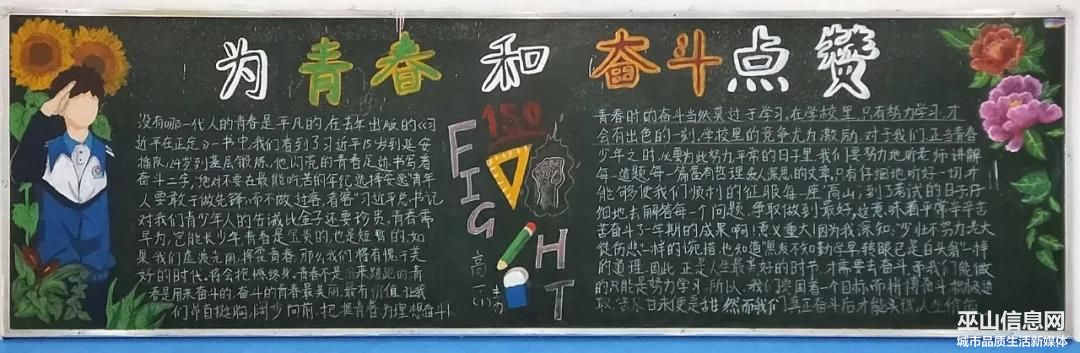 为青春和奋斗点赞
没有哪一代人的青春是平凡的,在去年出版的《习
近平在正定》一书中,我们看到了习近平15岁到延安
插队,24岁到基层锻炼,他闪亮的青春足迹书写着
奋斗二字,绝对不要在最能吃苦的年纪选择安逸
人要敢于做先锋,而不做过客,看客"习近平总书记
对我们青少年人的告诫比金子还要珍贵,青春需
早为,它能长少年,青春是宝贵的,也是短暂的,如
果我们虚度光阴,挥霍青春,那么我们将有愧于美
好的时代,将会抱憾终身,青春不是用来蹉跎的,青
春是用来奋斗的,奋斗的青春最美丽,最有价值,让我
们昂首挺胸,阔步向前,把握青春为理想奋斗!
150
FIG
HT
高一
青春时的奋斗当然莫过于学习,在学校里,只有努力学习,才
会有出色的一刻,学校里的竞争尤为激励,对于我们正当青春
少年之时,必要为此努力,平常的日子里,我们要努力地听老师讲解
每一道题,每一篇富有哲理
的文章,只有仔细地听好一切才
能够使我们顺利的征服每一座"高山",到了考试的日子,仔
细地去解答每一个问题,争取做到最好,这意味着平常辛辛苦
苦奋斗了一学期的成果啊!意义重大!因为我深知"少壮不努力老大
徒伤悲"一样的诡
也知道"黑发不知勤学早转眼已是白头翁"一样
的道理,因此,正是人生最美好的时节,才需要去奋斗,而我们能做
的只能是努力学习,所以,我们要围着一个目标而拼搏奋斗,积极进
取,苦尽甘来便是甜,然而我们真正奋斗后才能实现人生价值
巫山信息网
城市品质生活新媒体